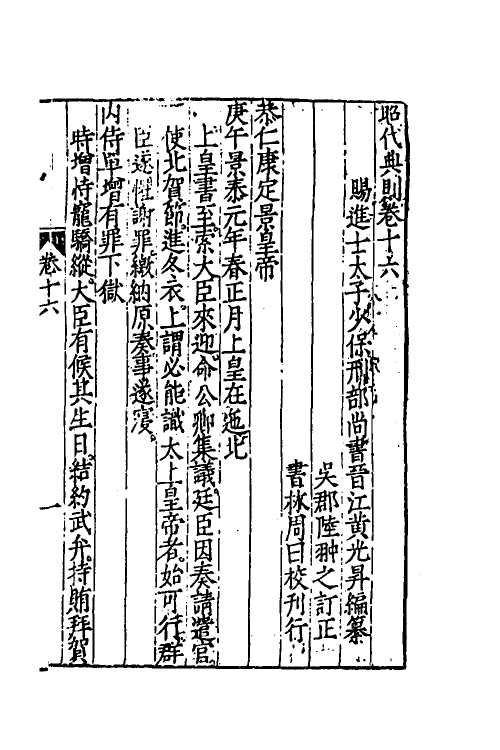 昭代典則卷十六
賜進士太子少保刑部尚書晉江黃光昇編纂
吳郡陸翀之訂正
書林周曰校刊行
恭仁康定景皇帝
庚午景泰元年春正月上皇在迤北
上皇書至索大臣來迎命公卿集議廷臣因奏請遣官
使北賀節進冬衣上謂必能識太上皇帝者始可行群
臣遂懼謝罪繳納原奏事遂寢
內侍單增有罪下獄
時增恃寵驕縱大臣有候其生日結約武弁持賄拜賀
卷十六
一